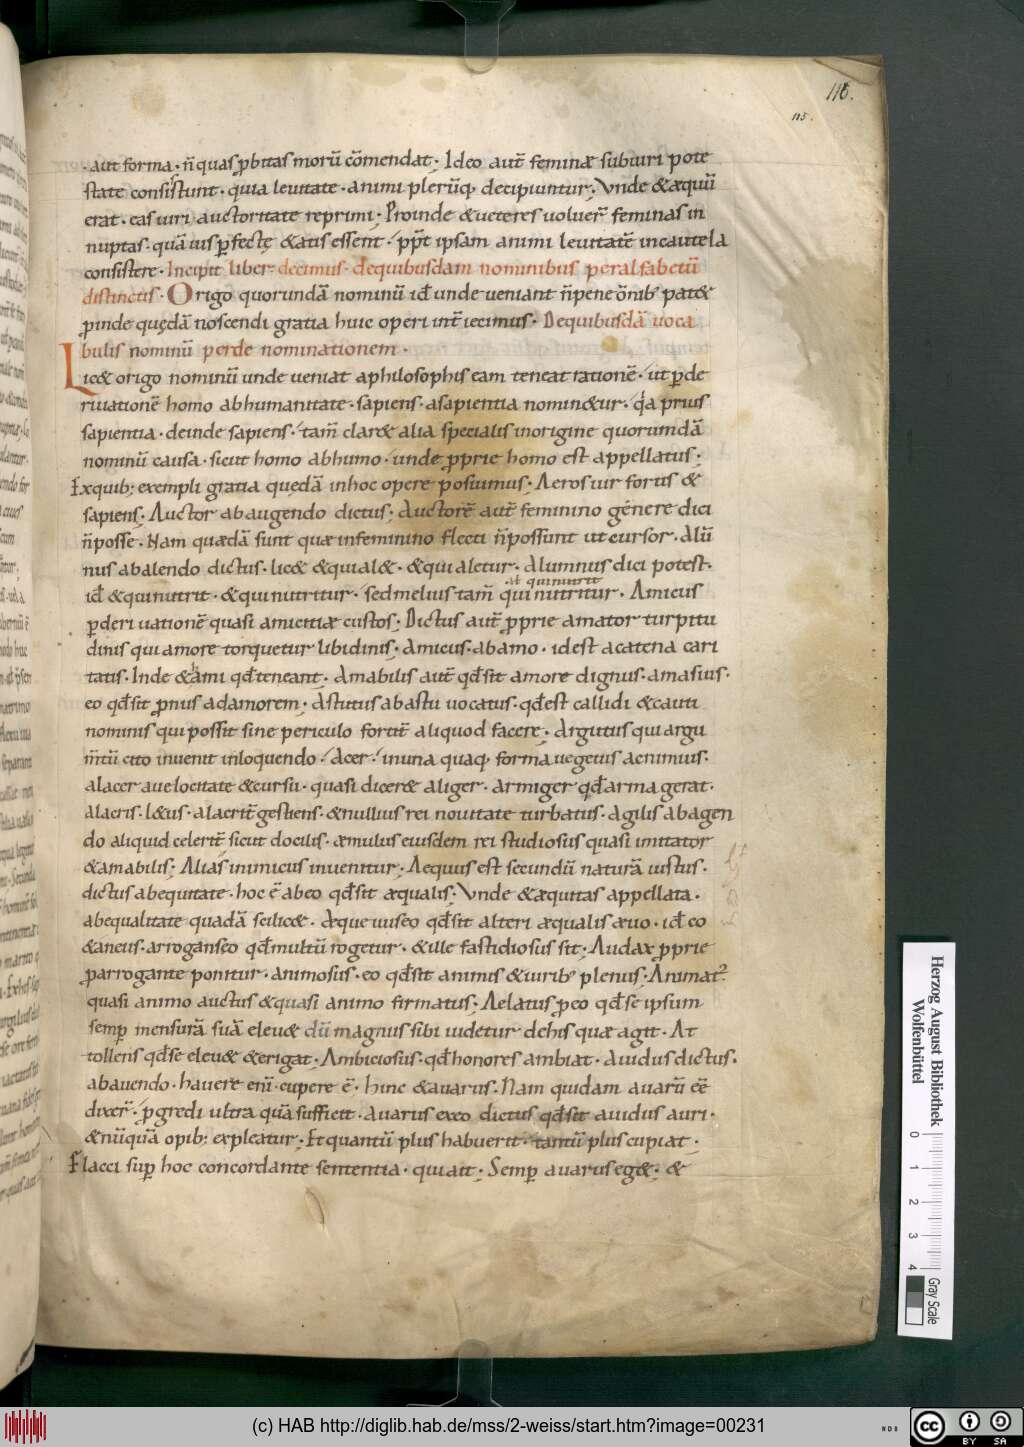 116.
115.
· aut forma · n̄ quas ꝓbitas morū cōmendat · Ideo aut̄ feminæ sub uiri pote
state consistunt · quia leuitate · animi plerūq; decipiuntur; Vnde & æquū
erat · eas uiri auctoritate reprimi; Proinde & ueteres uoluer̄ feminas in
nuptas · quā uis ꝑfectę & atis essent · ꝓpt̄ ipsam animi leuitatē in cautela
consistere · Incipit liber decimus · de quibusdam nominibus per alfabetū
distinctis · Origo quorundā nominū id̄ unde ueniant n̄ pene ōnib; pat&
ꝓinde quędā noscendi gratia huic operi int̄iecimus · De quibusdā uoca
bulis nominū per denominationem ·
Lic& origo nominū unde ueniat a philosophis eam teneat rationē · ut ꝑ de
riuationē homo ab humanitate · sapiens · a sapientia nomin&ur · q̄a prius
sapientia · deinde sapiens · tam̄ clar& alia specialis in origine quorumdā
nominū causa · sicut homo ab humo · unde ꝓprie homo est appellatus;
Ex quib; exempli gratia quędā in hoc opere posuimus; Aeros uir fortis &
sapiens; Auctor ab augendo dictus; Auctorē aut̄ feminino génere dici
n̄ posse · Nam quædā sunt quæ in feminino flecti n̄ possunt ut cursor · Alū
nus ab alendo dictus · lic& & qui al& · & qui aletur · Alumnus dici potest ·
at qui nutrit
id̄ & qui nutrit · & qui nutritur · sed melius tam̄ qui nutritur · Amicus
ꝑ deri uationē quasi amicitiæ custos; Dictus aut̄ ꝓprie amator turpitu
dinis qui amore torquetur libidinis; Amicus · ab amo · id est a catena cari
tatis · Inde & hami qđ teneant; Amabilis aut̄ qđ sit amore dignus · amasius ·
eo qđ sit ꝓnus ad amorem; Astutus ab astu uocatus · qđ est callidi & cauti
nominis qui possit sine periculo fortit̄ aliquod facere; Argutus qui argu
m̄tū cito inuenit in loquendo · Acer · in una quaq; forma uegetus ac nimius ·
alacer a uelocitate & cursu · quasi dicer& aliger · armiger qđ arma gerat ·
alacris · l&us · alacrit̄ gestiens · & nullius rei nouitate turbatus · Agilis ab agen
do aliquid celerit̄ sicut docilis · æmulus eiusdem rei studiosus quasi imitator
& amabilis; Alias inimicus inuenitur; Aequus est secundū naturā iustus ·
dictus ab equitate · hoc ē ab eo qđ sit æqualis; Vnde & æquitas appellata ·
ab equalitate quadā scilic& · Aeque uus eo qđ sit alteri æqualis æuo · id̄ eo
& aneus · arrogans eo qđ multū rogetur · & ille fastidiosus sit; Audax ꝓprie
ꝓ arrogante ponitur · animosus · eo qđ sit animis & uirib; plenus; Animat᷒
quasi animo auctus & quasi animo firmatus; Aelatus ꝓ eo qđ se ipsum
semꝑ mensurā suā eleu& dū magnus sibi uidetur de his quæ agit · At
tollens qđ se eleu& & erigat; Ambiciosus · qđ honores ambiat · Auidus dictus ·
ab auendo · hauere eni · cupere ē · Hinc & auarus · Nam quidam auarū eē
dixer̄ · ꝓgredi ultra quā sufficit · Auarus ex eo dictus qđ sit auidus auri ·
& nūquā opib; expleatur; Et quantū plus habuerit · tantū plus cupiat ·
Flacci suꝑ hoc concordante sententia · qui ait; Semꝑ auarus eg&; &
Herzog August Bibliothek
Wolfenbüttel
0 1 2 3 4
Gray Scale
(c) HAB http://diglib.hab.de/mss/2-weiss/start.htm?image=00231
WDB
cc
BY SA